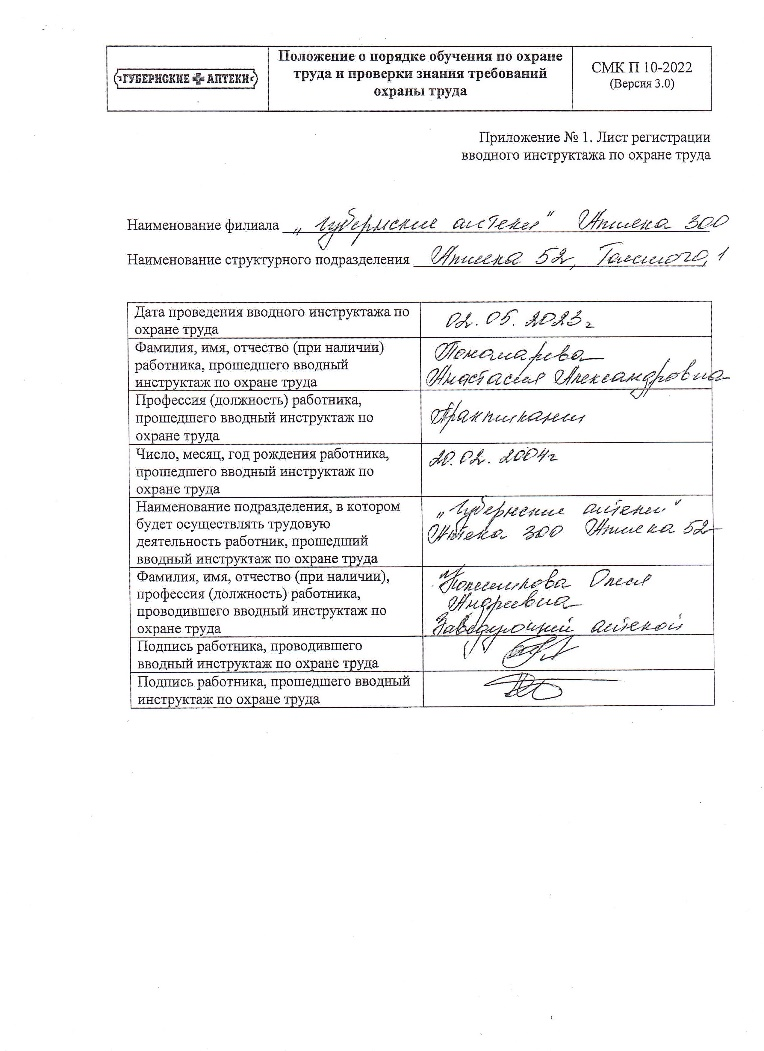 ГУБЕРНСКИЕ АПТЕКИ
Положение о порядке обучения по охране
труда и проверки знания требований
охраны труда
СМК П 10-2022
(Версия 3.0)
Приложение № 1. Лист регистрации
вводного инструктажа по охране труда
Наименование филиала „Губернские аптеки" Аптека 300
Наименование структурного подразделения Аптека 52, Толстого, 1
Дата проведения вводного инструктажа по
охране труда
02.05.2023г
Фамилия, имя, отчество (при наличии)
работника, прошедшего вводный
инструктаж по охране труда
Пономарева
Анастасия Александровна
Профессия (должность) работника,
прошедшего вводный инструктаж по
охране труда
Практикант
Число, месяц, год рождения работника,
прошедшего вводный инструктаж по
охране труда
20.02.2004г
Наименование подразделения, в котором
будет осуществлять трудовую
деятельность работник, прошедший
вводный инструктаж по охране труда
„Губернские аптеки"
Аптека 300 Аптека 52
Фамилия, имя, отчество (при наличии),
профессия (должность) работника,
проводившего вводный инструктаж по
охране труда
Олеся
Андреевна
Заведующий аптекой
Подпись работника, проводившего
вводный инструктаж по охране труда
Подпись работника, прошедшего вводный
инструктаж по охране труда